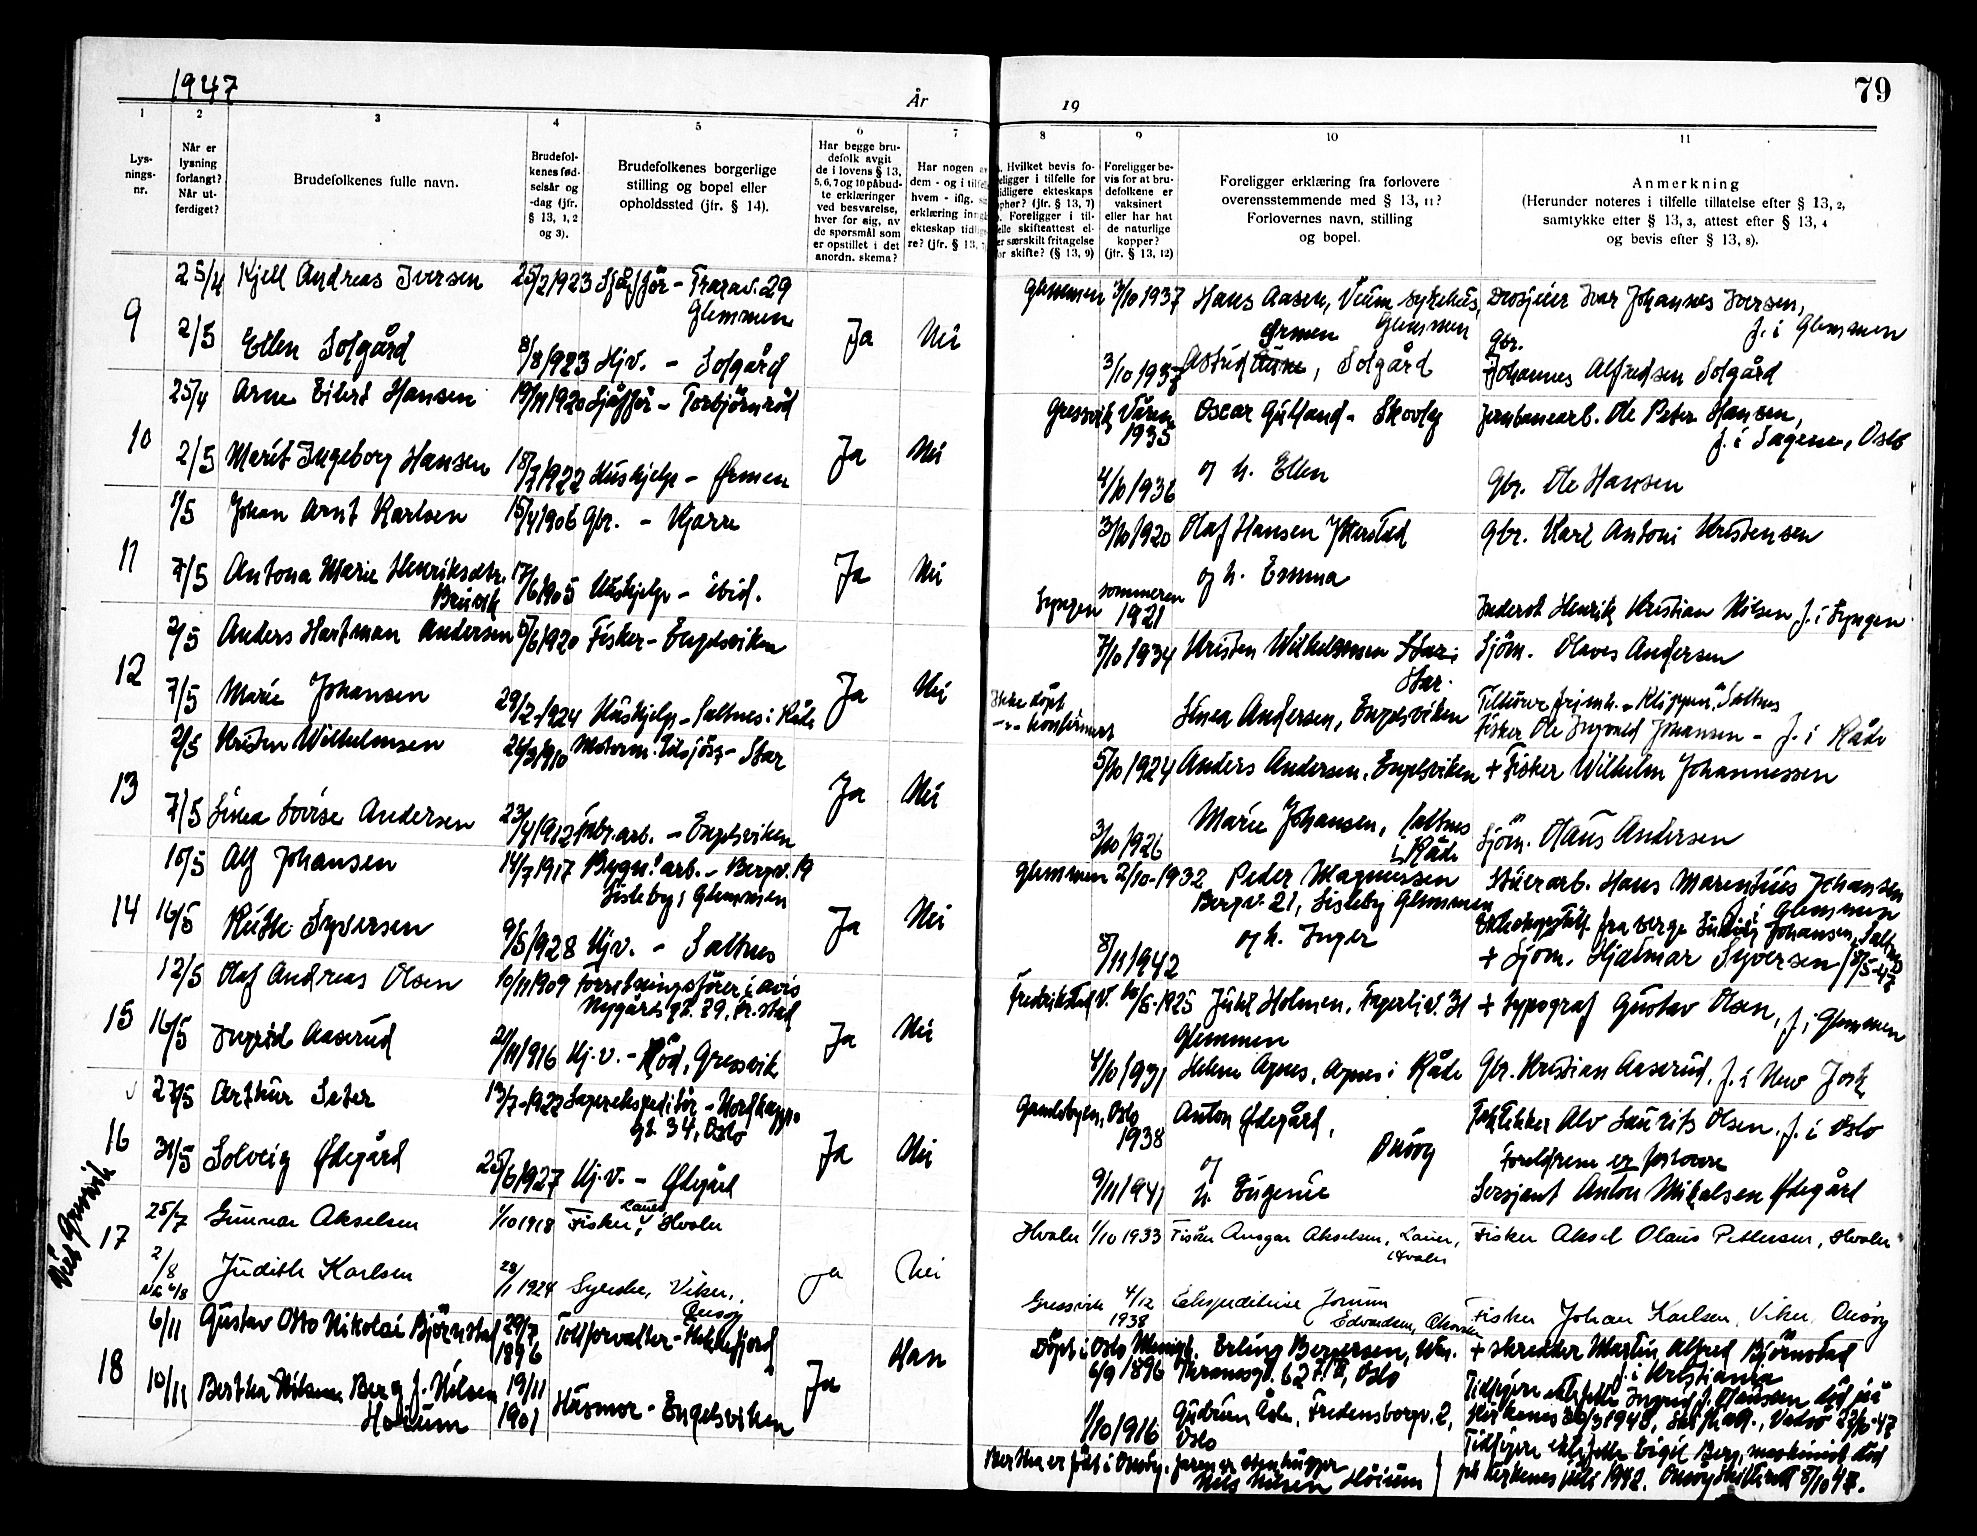 1947
År
19
79
1 2 3 4 5 6 7 8 9 10 11
Lys-
nings-
nr.
Når er
lysning
forlangt?
Når ut-
ferdiget?
Brudefolkenes fulle navn.
Brudefol-
kenes fød-
selsår og
-dag (jfr.
§ 13, 1, 2
og 3).
Brudefolkenes borgerlige
stilling og bopel eller
opholdssted (jfr. § 14).
Har begge bru-
defolk avgit
de i lovens § 13,
5, 6, 7 og 10 påbud-
te erklæringer
ved besvarelse,
hver for sig, av
de spørsmål som
er opstillet i det
anordn. skema?
Har nogen av
dem - og i tilfelle
hvem - iflg.
erklæring inng
ekteskap tidlig
re? (jfr. § 13,
Hvilket bevis fo-
religger i tilfelle for
tidligere ekteskaps
opher? (jfr. § 13, 7)
Foreligger i til-
felle skifteattest el-
er særskilt fritagelse
for skifte? (§ 13, 9)
Foreligger be-
vis for at bru-
defolkene er
vaksinert
eller har hat
de naturlige
kopper?
(jfr. § 13, 12)
Foreligger erklæring fra forlovere
overensstemmende med § 13, 11?
Forlovernes navn, stilling
og bopel.
Anmerkning
(Herunder noteres i tilfelle tillatelse efter § 13, 2,
samtykke efter § 13, 3, attest efter § 13, 4
og bevis efter § 13, 8).
9
25/4 Kjell Andreas Iversen 25/2 1923 Sjåffør - Trarav. 29
Glemmen
Glemmen 3/10 1937 Hans Aasen, Veum sykehus, Glemmen
Drosjeeier Ivar Johannes Iversen,
f. i Glemmen
2/5 Ellen Solgård 8/8 1923 Hj.v. - Solgård Ja Nei
3/10 1937 Astrid Ørmen, Solgård
Gbr.
Johannes Alfredsen Solgård
10
25/4 Arne Eilert Hansen 19/11 1920 Sjåffør - Torbjörnröd
Gressvik Våren
1935
Oscar Gulland - Skovly
Jernbanearb. Ole Peter Hansen,
f. i Sagene, Oslo
2/5 Marit Ingeborg Hansen 18/7 1922 Hushjelp - Ørmen Ja Nei
4/10 1936 og h. Ellen
Gbr. Ole Hansen
11
1/5 Johan Arnt Karlsen 15/4 1906 Gbr. - Kjærre
3/10 1920 Olaf Hansen
Gbr. Karl Antoni Kristensen
7/5 Antona Marie Henriksdtr.
17/6 1905 Hushjelp - ibid. Ja Nei
Lyngen sommeren
1921
og h. Emma
Henrik Kristian Nilsen f. i Lyngen
12
2/5 Anders Hartman Andersen 5/6 1920 Fisker - Engelsviken
7/10 1934 Kristen Wilhelmsen
Star.
Sjöm. Olaves Andersen
7/5 Marie Johansen 29/2-1924 Hushjelp - Saltnes i Råde Ja Nei
Ikke döpt
-"- konfirmert
Linea Andersen, Engelsviken
Tilhörer frimh. "Klippen", Saltnes
Fisker Ole Ingvald Johansen - f. i Råde
13
2/5 Kristen Wilhelmsen 26/3 1910 Motorm. tilsjös - Star
5/10 1924 Anders Andersen, Engelsviken
+ Fisker Wilhelm Johannessen
7/5 Linea Lovise Andersen 23/4 1912 fabr.arb. - Engelsviken Ja Nei
3/10 1926
Marie Johansen, Saltnes
i Råde
Sjöm. Olaus Andersen
14
10/5 Alf Johansen 14/7 1917 Bygn.arb. - Bergv. 19
Lisleby, Glemmen
Glemmen 2/10-1932 Peder Magnussen
Bergv. 21, Lisleby Glemmen
Stuerarb. Hans Marentius Johansen
f. i Glemmen
16/5 Ruth Syversen 9/5 1928 Hj.v. - Saltnes Ja Nei
8/11 1942
og h. Inger
fra verge Johansen, Saltnes
+ Sjöm. Hjalmar Syversen 18/5-47
15
12/5 Olaf Andreas Olsen 10/11 1909 Forretningsförer i avis
Nygårdsgt. 29, Fr.stad
Fredrikstad V. 10/5-1925 Juhl Holmen, Fagerliv. 31
Glemmen
+ typograf Gustav Olsen, f. i Glemmen
16/5 Ingrid Aaserud 21/11 1916 Hj.v. - Röd, Gressvik Ja Nei
4/10 1931 Helene Agnes, Agnes i Råde
Gbr. Kristian Aaserud, f. i New York
16
27/5 Arthur Sater 13/7-1922 Lagerekspeditör - Nordkapp-
gt. 34, Oslo
Gamlebyen, Oslo
1938
Anton Ødegård,
Onsøy
Alv Laurits Olsen, f. i Oslo
Foreldrene er forlovere
31/5 Solveig Ødegård 25/6 1927 Hj.v. - Ødegård Ja Nei
9/11 1941
og
h. Eugenie
Sersjant Anton Mikalsen Ødegård
Gressvik
17
25/7 Gunnar Akselsen 1/10 1918 Fisker, Lauer, Hvaler
Hvaler 1/10 1933 Fisker Ansgar Akselsen, Lauer,
Hvaler
Fisker Aksel Olaus Pettersen, Hvaler
2/8 Judith Karlsen 28/1 1924 Syerske, Viker,
Onsøy
ja Nei
Gressvik 4/12
1938
Ekspeditrise Jorunn
Edvardsen,
Fisker Johan Karlsen, Viker, Onsøy
18
6/11 Gustav Otto Nikolai Björnstad 29/7
1896
Tollforvalter -
Han
Döpt i Oslo
6/9 1896
Erling Bergersen,
62, Oslo
+ skredder Martin Alfred Björnstad
f. i Kristiania
10/11 Bertha Nilsine Berg f. Nilsen
Höium
19/11
1901
Husmor - Engelsviken Ja
1/10 1916
Gudrun Åsle, Fredensborgv. 2,
Oslo
Tidligere ektefelle Ingrid f. Hanssen död på
Kirkenes
Tidligere ektefelle Eigil Berg, maskinist död
på Kirkenes juli 1942. Onsøy 8/10 47.
Bertha er født i Onsøy. faren er stenhugger
Nils Nilsen Höium